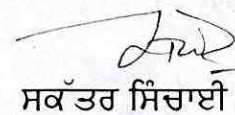 ਸਕੱਤਰ ਸਿੰਚਾਈ